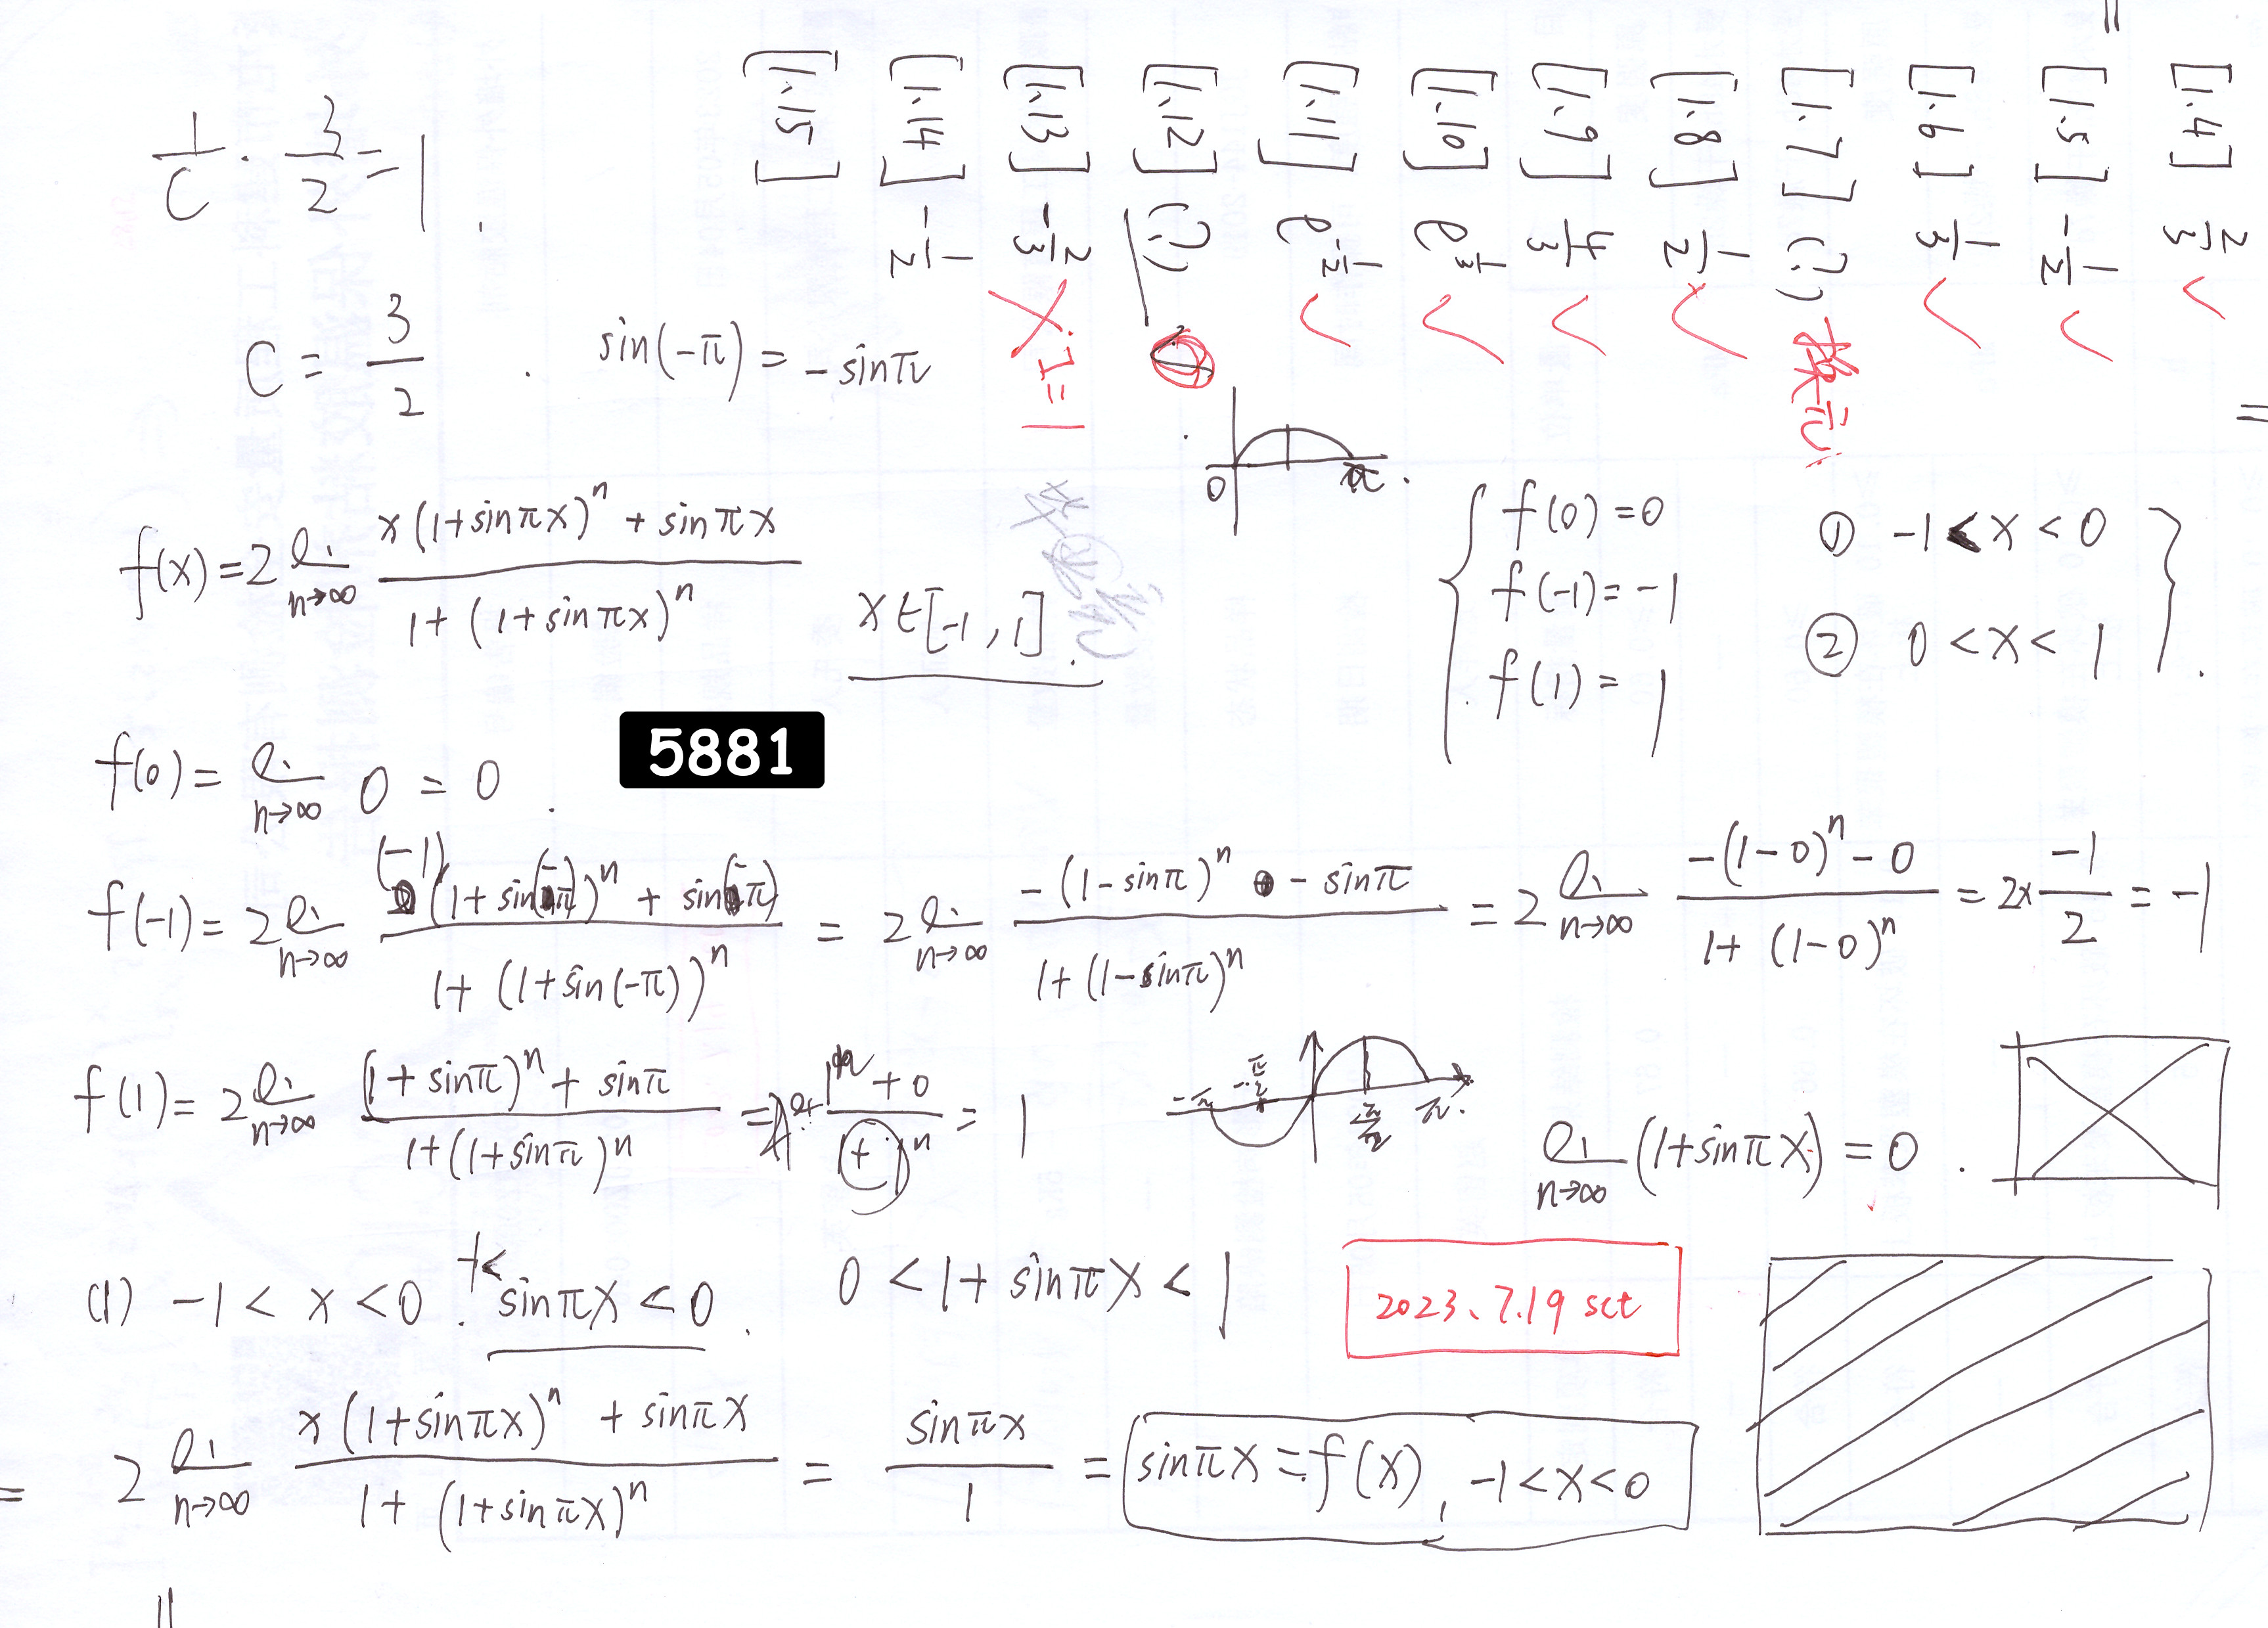 [1.4] 2/3 ✓
[1.5] -1/2 ✓
[1.6] 1/3 ✓
[1.7] (?) 换元
[1.8] 1/2 ✓
[1.9] 4/3 ✓
[1.10] e^{1/3} ✓
[1.11] e^{-1/2} ✓
[1.12] (?)
[1.13] -2/3 ✗ I=1
[1.14] -1/2
[1.15]
1/C · 3/2 = 1.
C = 3/2 . sin(-π) = -sinπ
0 π
f(x) = 2 lim_{n→∞} \frac{x(1+sinπx)^n + sinπx}{1+(1+sinπx)^n} x∈[-1,1].
f(0)=0
f(-1)=-1
f(1)=1
① -1<x<0
② 0<x<1
f(0) = lim_{n→∞} 0 = 0.
5881
f(-1) = 2 lim_{n→∞} \frac{(-1)(1+sin(-π))^n + sin(-π)}{1+(1+sin(-π))^n} = 2 lim_{n→∞} \frac{-(1-sinπ)^n - sinπ}{1+(1-sinπ)^n} = 2 lim_{n→∞} \frac{-(1-0)^n-0}{1+(1-0)^n} = 2×\frac{-1}{2} = -1
f(1) = 2 lim_{n→∞} \frac{(1+sinπ)^n + sinπ}{1+(1+sinπ)^n} = 1
-π -π/2 π/2 π.
lim_{n→∞} (1+sinπx) = 0.
(1) -1<x<0. -1< sinπx<0. 0<1+sinπx<1
2023、7.19 sct
= 2 lim_{n→∞} \frac{x(1+sinπx)^n + sinπx}{1+(1+sinπx)^n} = \frac{sinπx}{1} = sinπx = f(x), -1<x<0